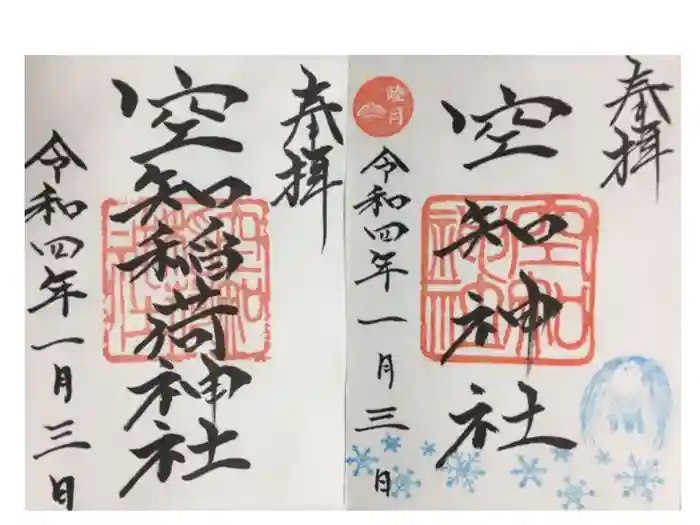 奉拝
空知稲荷神社
令和四年一月三日
奉拝
空知神社
睦月
令和四年一月三日